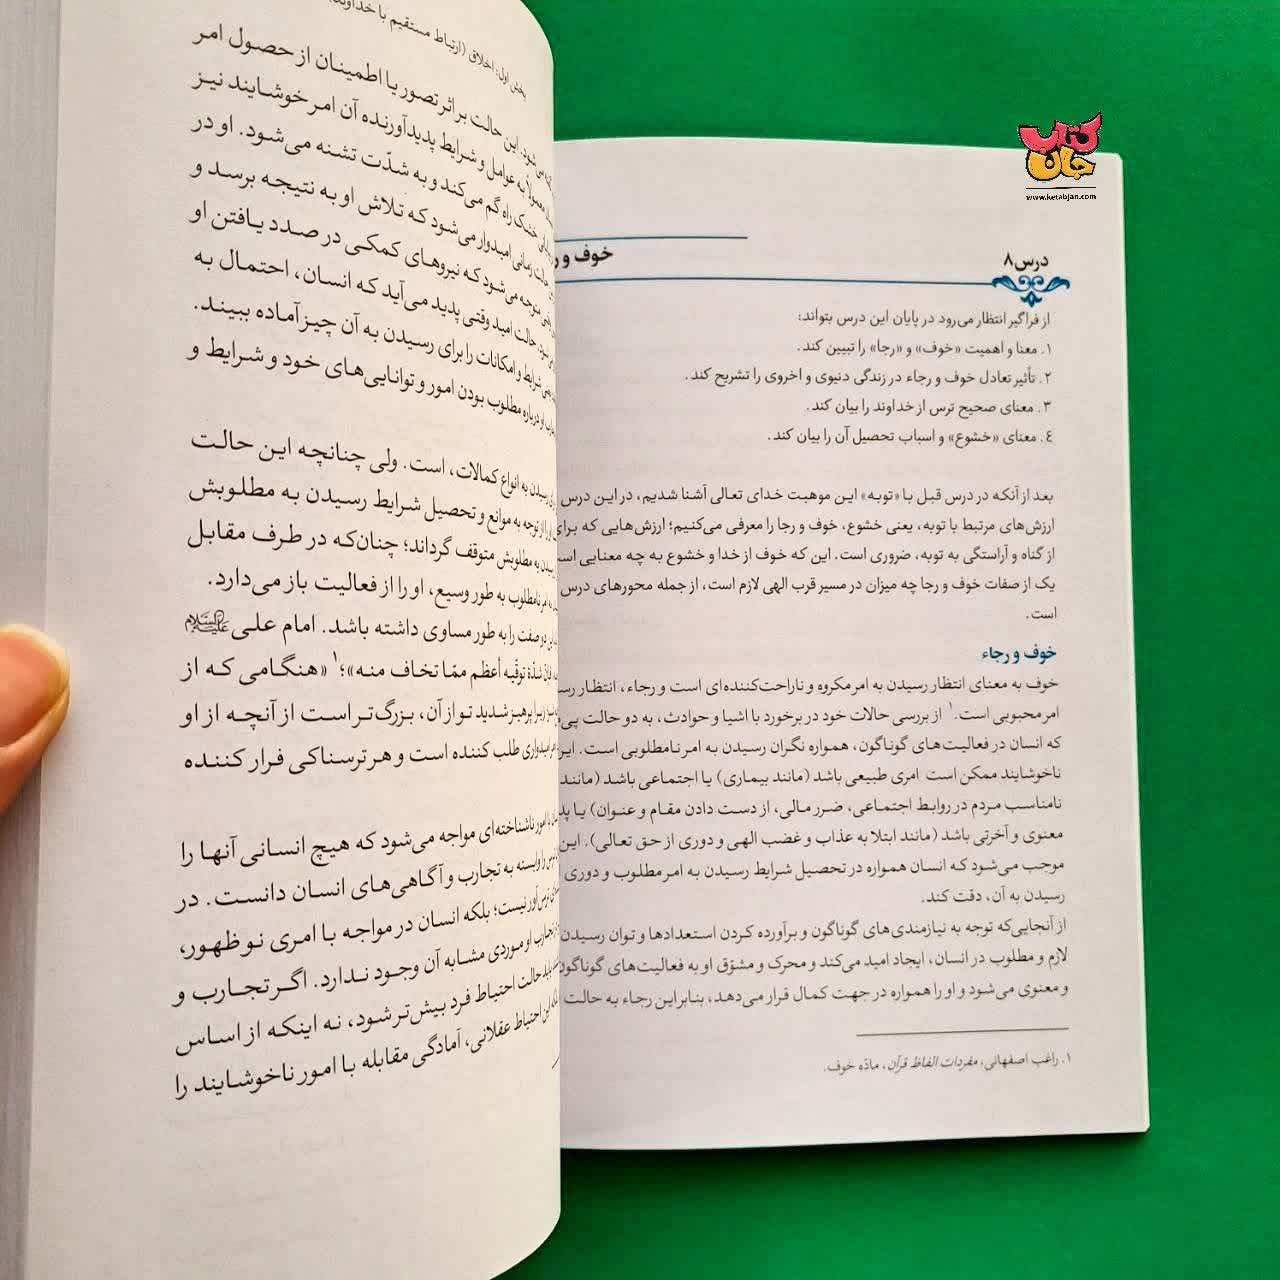 کتاب
جان
www.ketabjan.com
درس ۸
خوف و
از فراگیر انتظار می‌رود در پایان این درس بتواند:
۱. معنا و اهمیت «خوف» و «رجا» را تبیین کند.
۲. تأثیر تعادل خوف و رجاء در زندگی دنیوی و اخروی را تشریح کند.
۳. معنای صحیح ترس از خداوند را بیان کند.
٤. معنای «خشوع» و اسباب تحصیل آن را بیان کند.
بعد از آنکه در درس قبل با «توبه» این موهبت خدای تعالی آشنا شدیم، در این درس
ارزش‌های مرتبط با توبه، یعنی خشوع، خوف و رجا را معرفی می‌کنیم؛ ارزش‌هایی که برای
از گناه و آراستگی به توبه، ضروری است. این که خوف از خدا و خشوع به چه معنایی
یک از صفات خوف و رجا چه میزان در مسیر قرب الهی لازم است، از جمله محورهای درس
است.
خوف و رجاء
خوف به معنای انتظار رسیدن به امر مکروه و ناراحت‌کننده‌ای است و رجاء، انتظار
امر محبوبی است.۱ از بررسی حالات خود در برخورد با اشیا و حوادث، به دو حالت
که انسان در فعالیت‌های گوناگون، همواره نگران رسیدن به امر نامطلوبی است.
ناخوشایند ممکن است امری طبیعی باشد (مانند بیماری) یا اجتماعی باشد (مانند
نامناسب مردم در روابط اجتماعی، ضرر مالی، از دست دادن مقام و عنوان) یا
معنوی و آخرتی باشد (مانند ابتلا به عذاب و غضب الهی و دوری از حق تعالی). این
موجب می‌شود که انسان همواره در تحصیل شرایط رسیدن به امر مطلوب و دوری
رسیدن به آن، دقت کند.
از آنجایی‌که توجه به نیازمندی‌های گوناگون و برآورده کردن استعدادها و توان رسیدن
لازم و مطلوب در انسان، ایجاد امید می‌کند و محرک و مشوّق او به فعالیت‌های گوناگون
و معنوی می‌شود و او را همواره در جهت کمال قرار می‌دهد، بنابراین رجاء به حالت
۱. راغب اصفهانی، مفردات الفاظ قرآن، مادّه خوف.
بخش اول: اخلاق (ارتباط مستقیم با خداوند
می‌شود. این حالت بر اثر تصور یا اطمینان از حصول امر
به عوامل و شرایط پدیدآورنده آن امر خوشایند نیز
خشک راه گم می‌کند و به شدّت تشنه می‌شود. او در
حالت زمانی امیدوار می‌شود که تلاش او به نتیجه برسد و
متوجه می‌شود که نیروهای کمکی در صدد یافتن او
حالت امید وقتی پدید می‌آید که انسان، احتمال به
شرایط و امکانات را برای رسیدن به آن چیز آماده ببیند.
او درباره مطلوب بودن امور و توانایی‌های خود و شرایط و
رسیدن به انواع کمالات، است. ولی چنانچه این حالت
از توجه به موانع و تحصیل شرایط رسیدن به مطلوبش
رسیدن به مطلوبش متوقف گرداند؛ چنان‌که در طرف مقابل
امر نامطلوب به طور وسیع، او را از فعالیت باز می‌دارد.
دو صفت را به طور مساوی داشته باشد. امام علی علیه‌السلام
شدّة توقّیه أعظم ممّا تخاف منه»؛۱ «هنگامی که از
زیرا پرهیز شدید تو از آن، بزرگ‌تر است از آنچه از او
امیدواری طلب کننده است و هر ترسناکی فرار کننده
با امور ناشناخته‌ای مواجه می‌شود که هیچ انسانی آنها را
را وابسته به تجارب و آگاهی‌های انسان دانست. در
ترس‌آور نیست؛ بلکه انسان در مواجه با امری نوظهور،
تجارب او موردی مشابه آن وجود ندارد. اگر تجارب و
باید حالت احتیاط فرد بیش‌تر شود، نه اینکه از اساس
این احتیاط عقلانی، آمادگی مقابله با امور ناخوشایند را